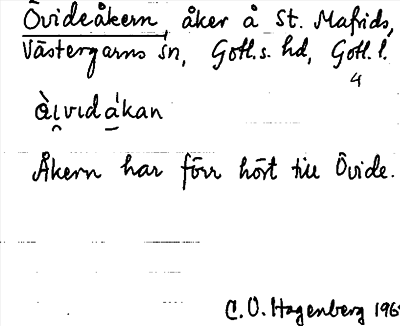 Övideåkern, åker å St. Mafrids,
Västergarns sn, Gotl. s. hd, Gotl. l.
4
Åkern har förr hört till Övide.
C. O. Hagenberg